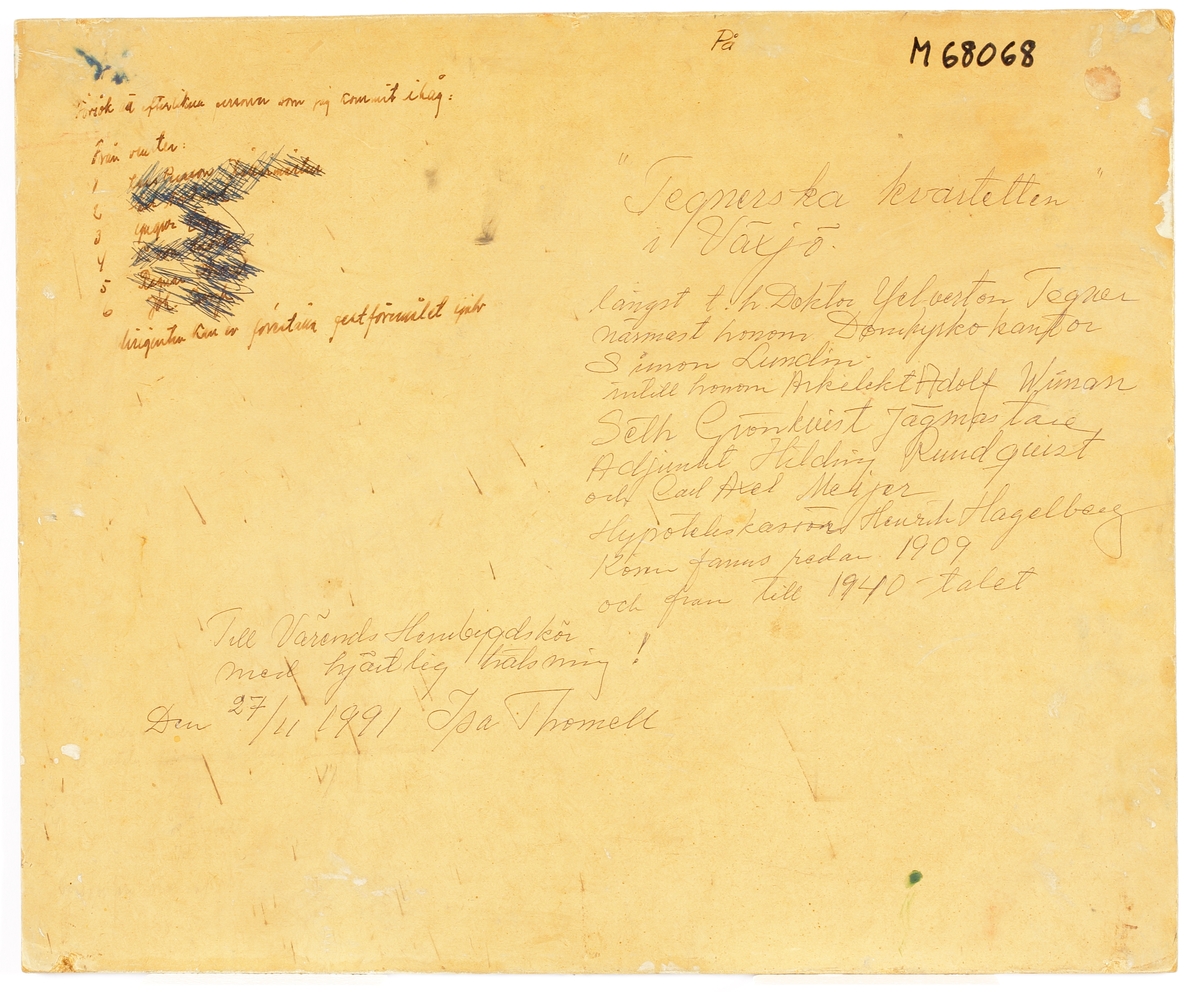 På
M 68068
Försök å efterlikna personer som jag kommit ihåg:
från venster:
1
2 
3 Yngve
4
5
6
dirigenten kan ev föreställa festföremålet själv
"Tegnerska kvartetten"
i Växjö.
längst t.h. Doktor Yelverton Tegner
närmast honom Domkyrkokantor
Simon Lundin.
intill honom Arkitekt Adolf Wiman
Seth Grönkvist Jägmästare
Adjunkt Hilding Rundquist
och Carl Axel Meijer
Hypotekskassör Henrik Hagelberg
Kören fanns redan 1909
och fram till 1940-talet
Till Värends Hembygdskör
med hjärtlig hälsning!
Den 27/11 1991 Isa Thomell